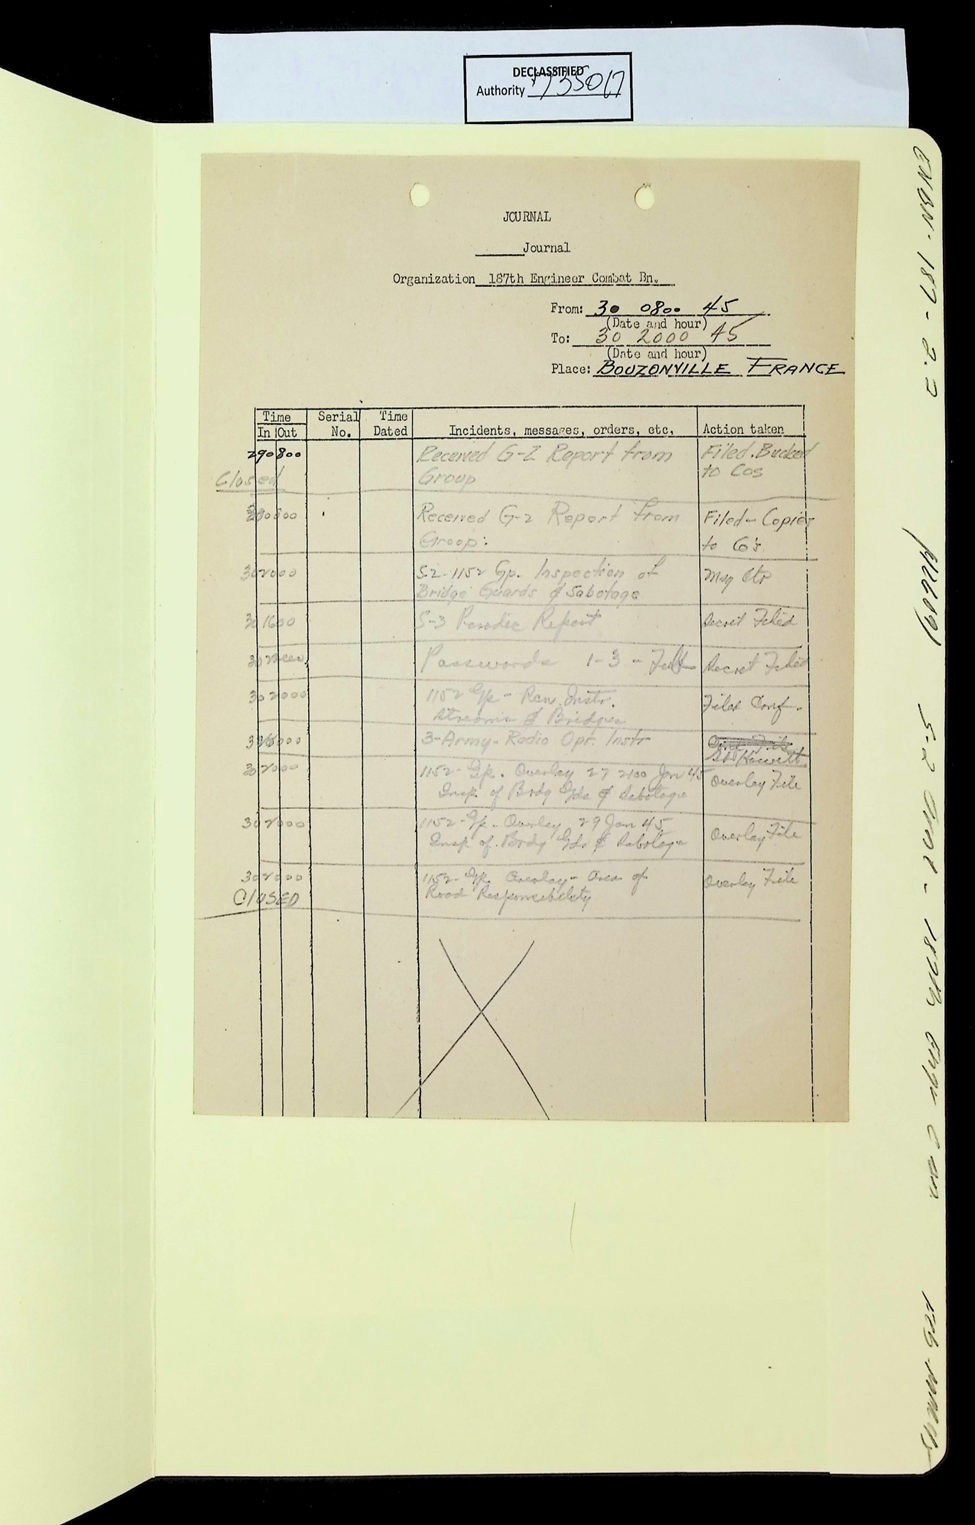 DECLASSIFIED
Authority 735017
JOURNAL
Journal
Organization 187th Engineer Combat Bn.
From: 30 0800 45
(Date and hour)
To: 30 2000 45
(Date and hour)
Place: BOUZONVILLE FRANCE
Time Serial Time
In Out No. Dated Incidents, messages, orders, etc, Action taken
290800 Received G-2 Report from Filed.
Closed Group to Cos
Received G-2 Report from Filed - Copies
Group: to Co's
302000 S-2-1152 Gp. Inspection of
Bridge Guards & Sabotage
301600 S-3 Periodic Report Secret Filed
Passwords 1-3 - Feb Secret Filed
302000 1152 Gp - Rcn Instr. Filed Conf.
Streams & Bridges
3-Army- Radio Opr. Instr
302000 1152-Gp. Overlay 27 2100 Jan 45 Overlay File
Insp. of Brdg Gds & Sabotage
302000 1152-Gp. Overlay 29 Jan 45 Overlay File
Insp. of Brdg Gds & Sabotage
302000 1152-Gp. Overlay - Area of Overlay File
CLOSED Road Responsibility
ENBN-187-2.2
S-2 Jrnl - 187th Engr C Bn